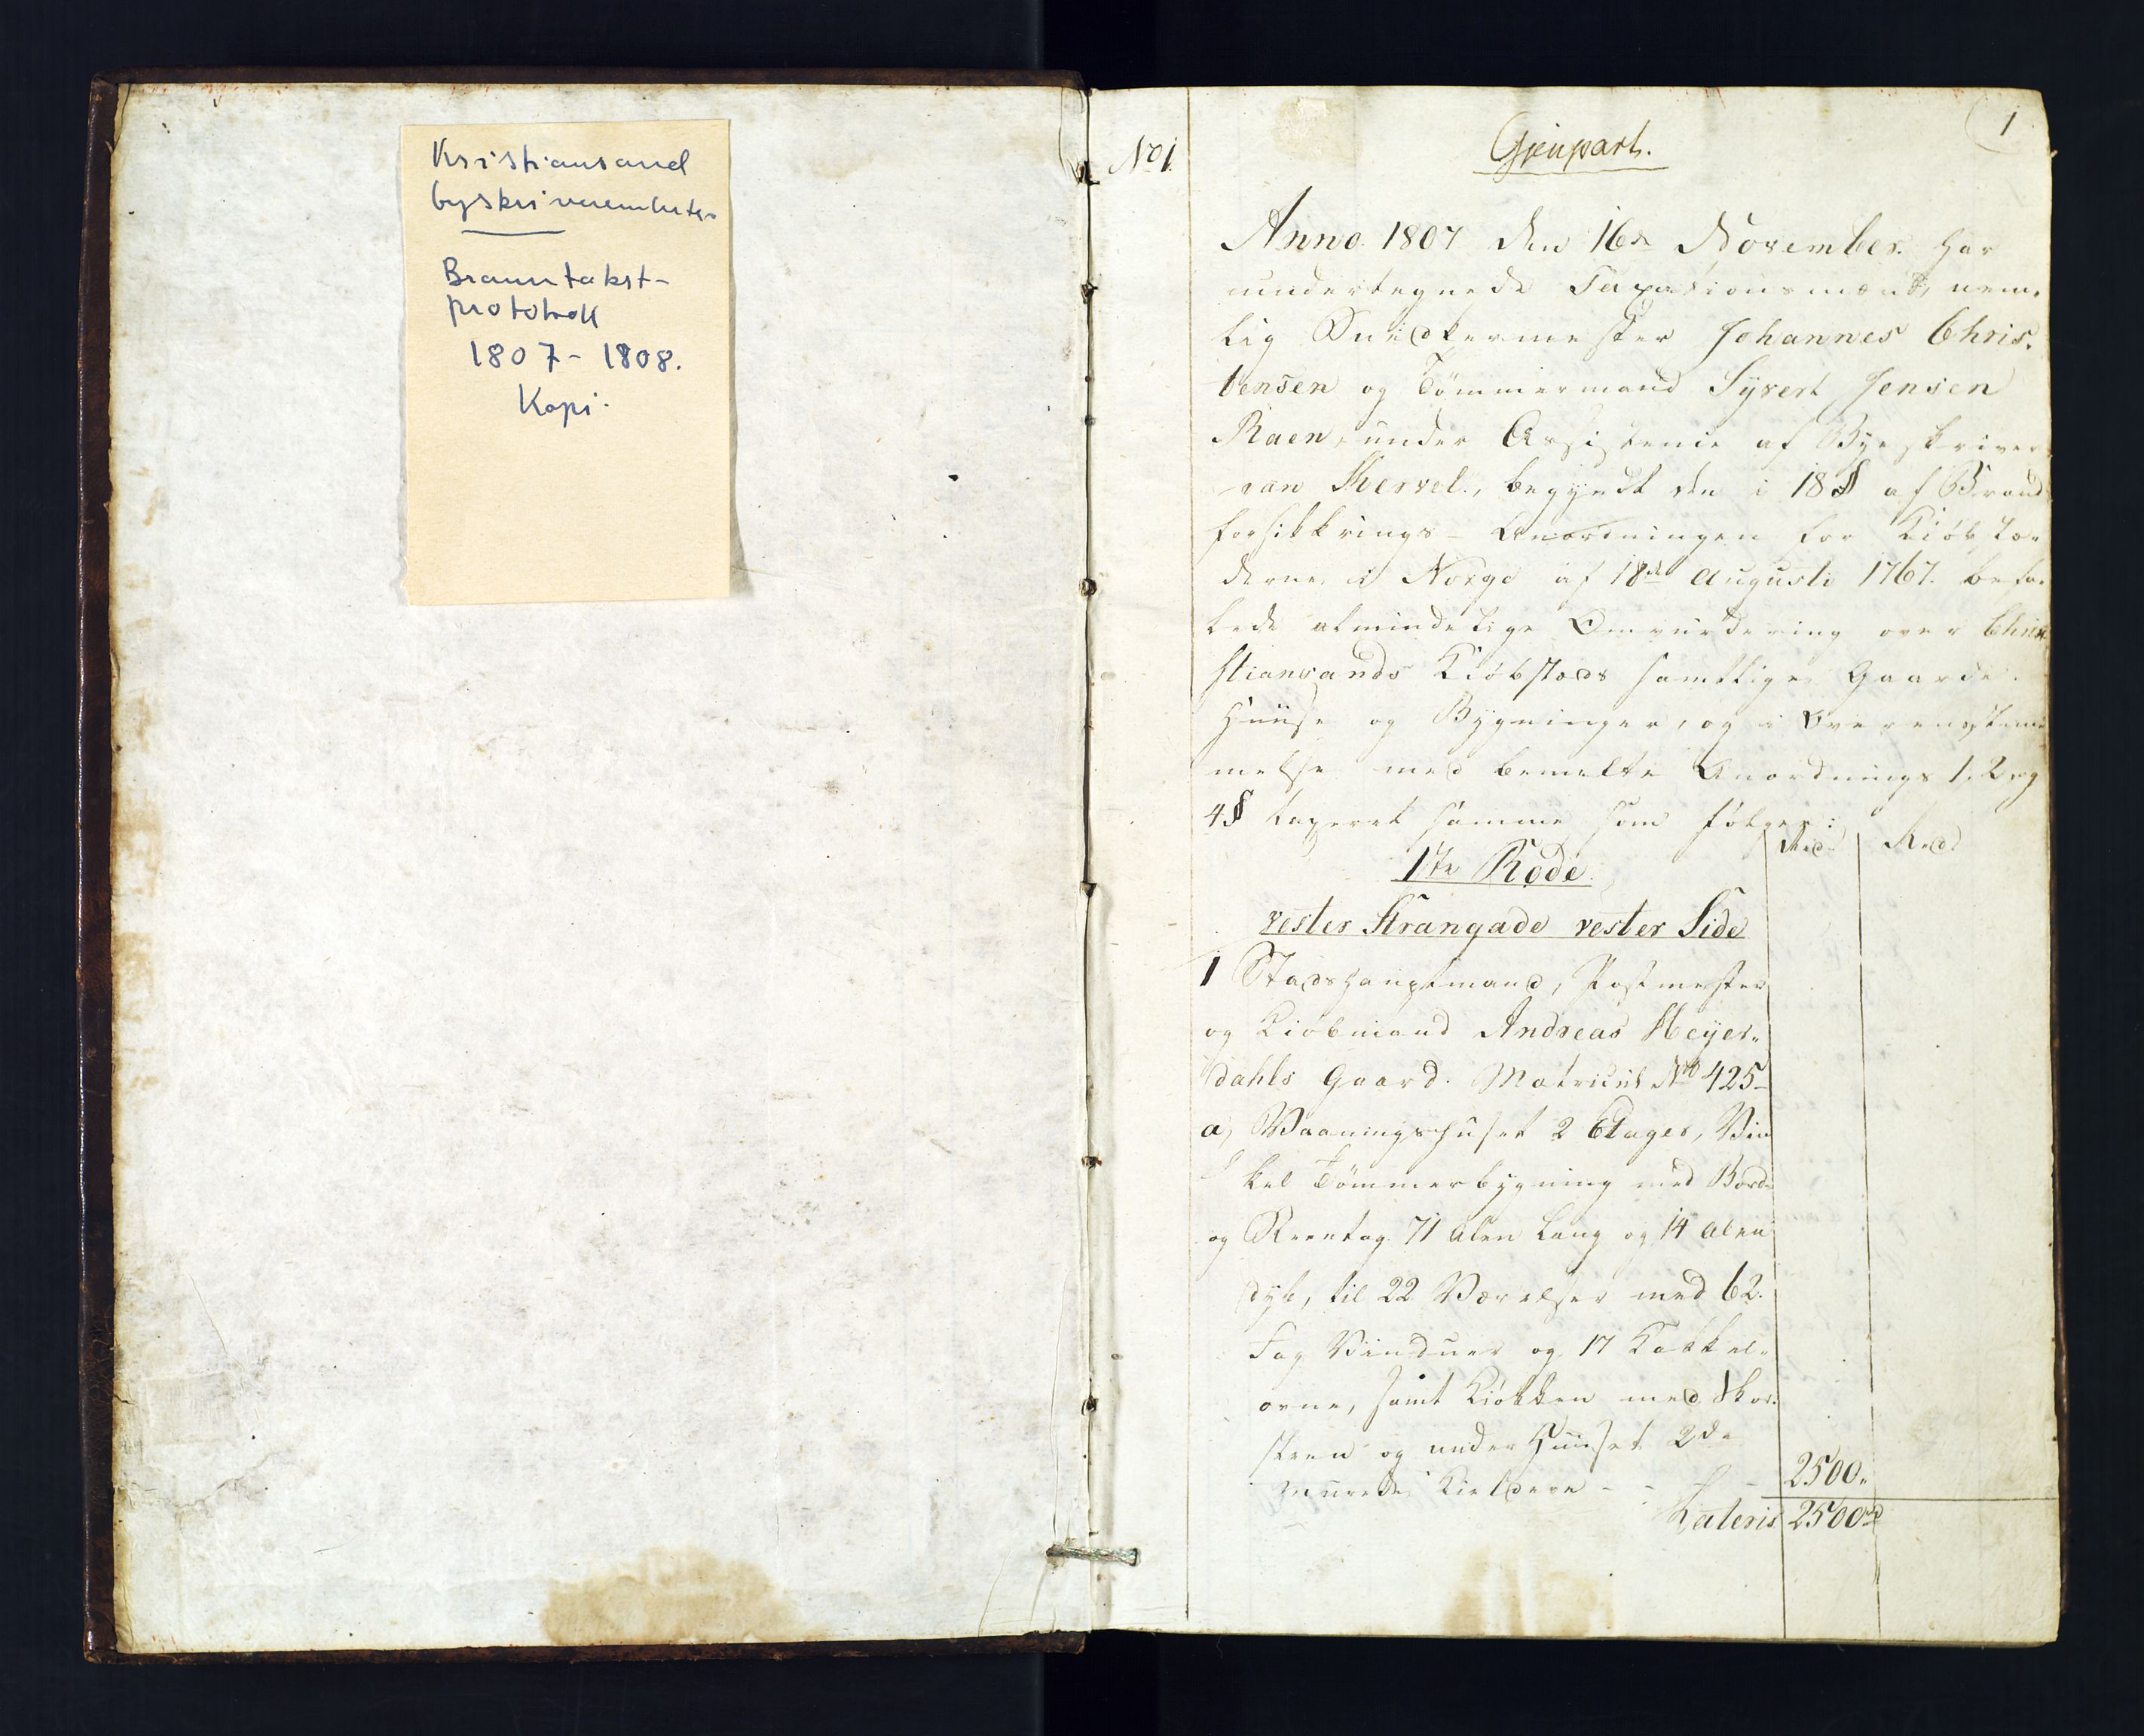 Kristiansand
byskriverembete
Branntakst-
protokoll
1807-1808.
Kopi.
1
No 1.
Gjenpart.
Anno 1807 den 16de November. har
undertegnede Taxationsmænd, nem-
lig Snedkermester Johannes Chris-
tensen og Tømmermand Syvert Jensen
Raen, under Assistence af Byeskriver
van Kervel, begyndt den i 18 § af Brand
forsikkrings-Anordningen for Kiøbstæ-
derne i Norge af 18de Augusti 1767. befa-
lede almindelige Omvurdering over Chri-
stiansands Kiøbstads samtlige Gaarde.
Huuse og Bygninger, og i Overenstem-
melse med bemelte Anordnings 1, 2 og
4 § taxeret samme som følger:
Rd Rd
1ste Rode.
vester Strangade vester Side
1 Stadshauptmand, Postmester
og Kiøbmand Andreas Heyer-
dahls Gaard. Matricul No 425-
a, Vaaningshuset 2 Etager, Vin
kel Tømmerbygning med Bord-
og Steentag 71 Alen lang og 14 Alen
dyb, til 22 Værelser med 62.
Fag Vinduer og 17 Kakkel-
ovne, samt Kiøkken med Skor-
steen og under Huuset 2de
murede Kieldere - - - 2500.
Lateris 2500rd